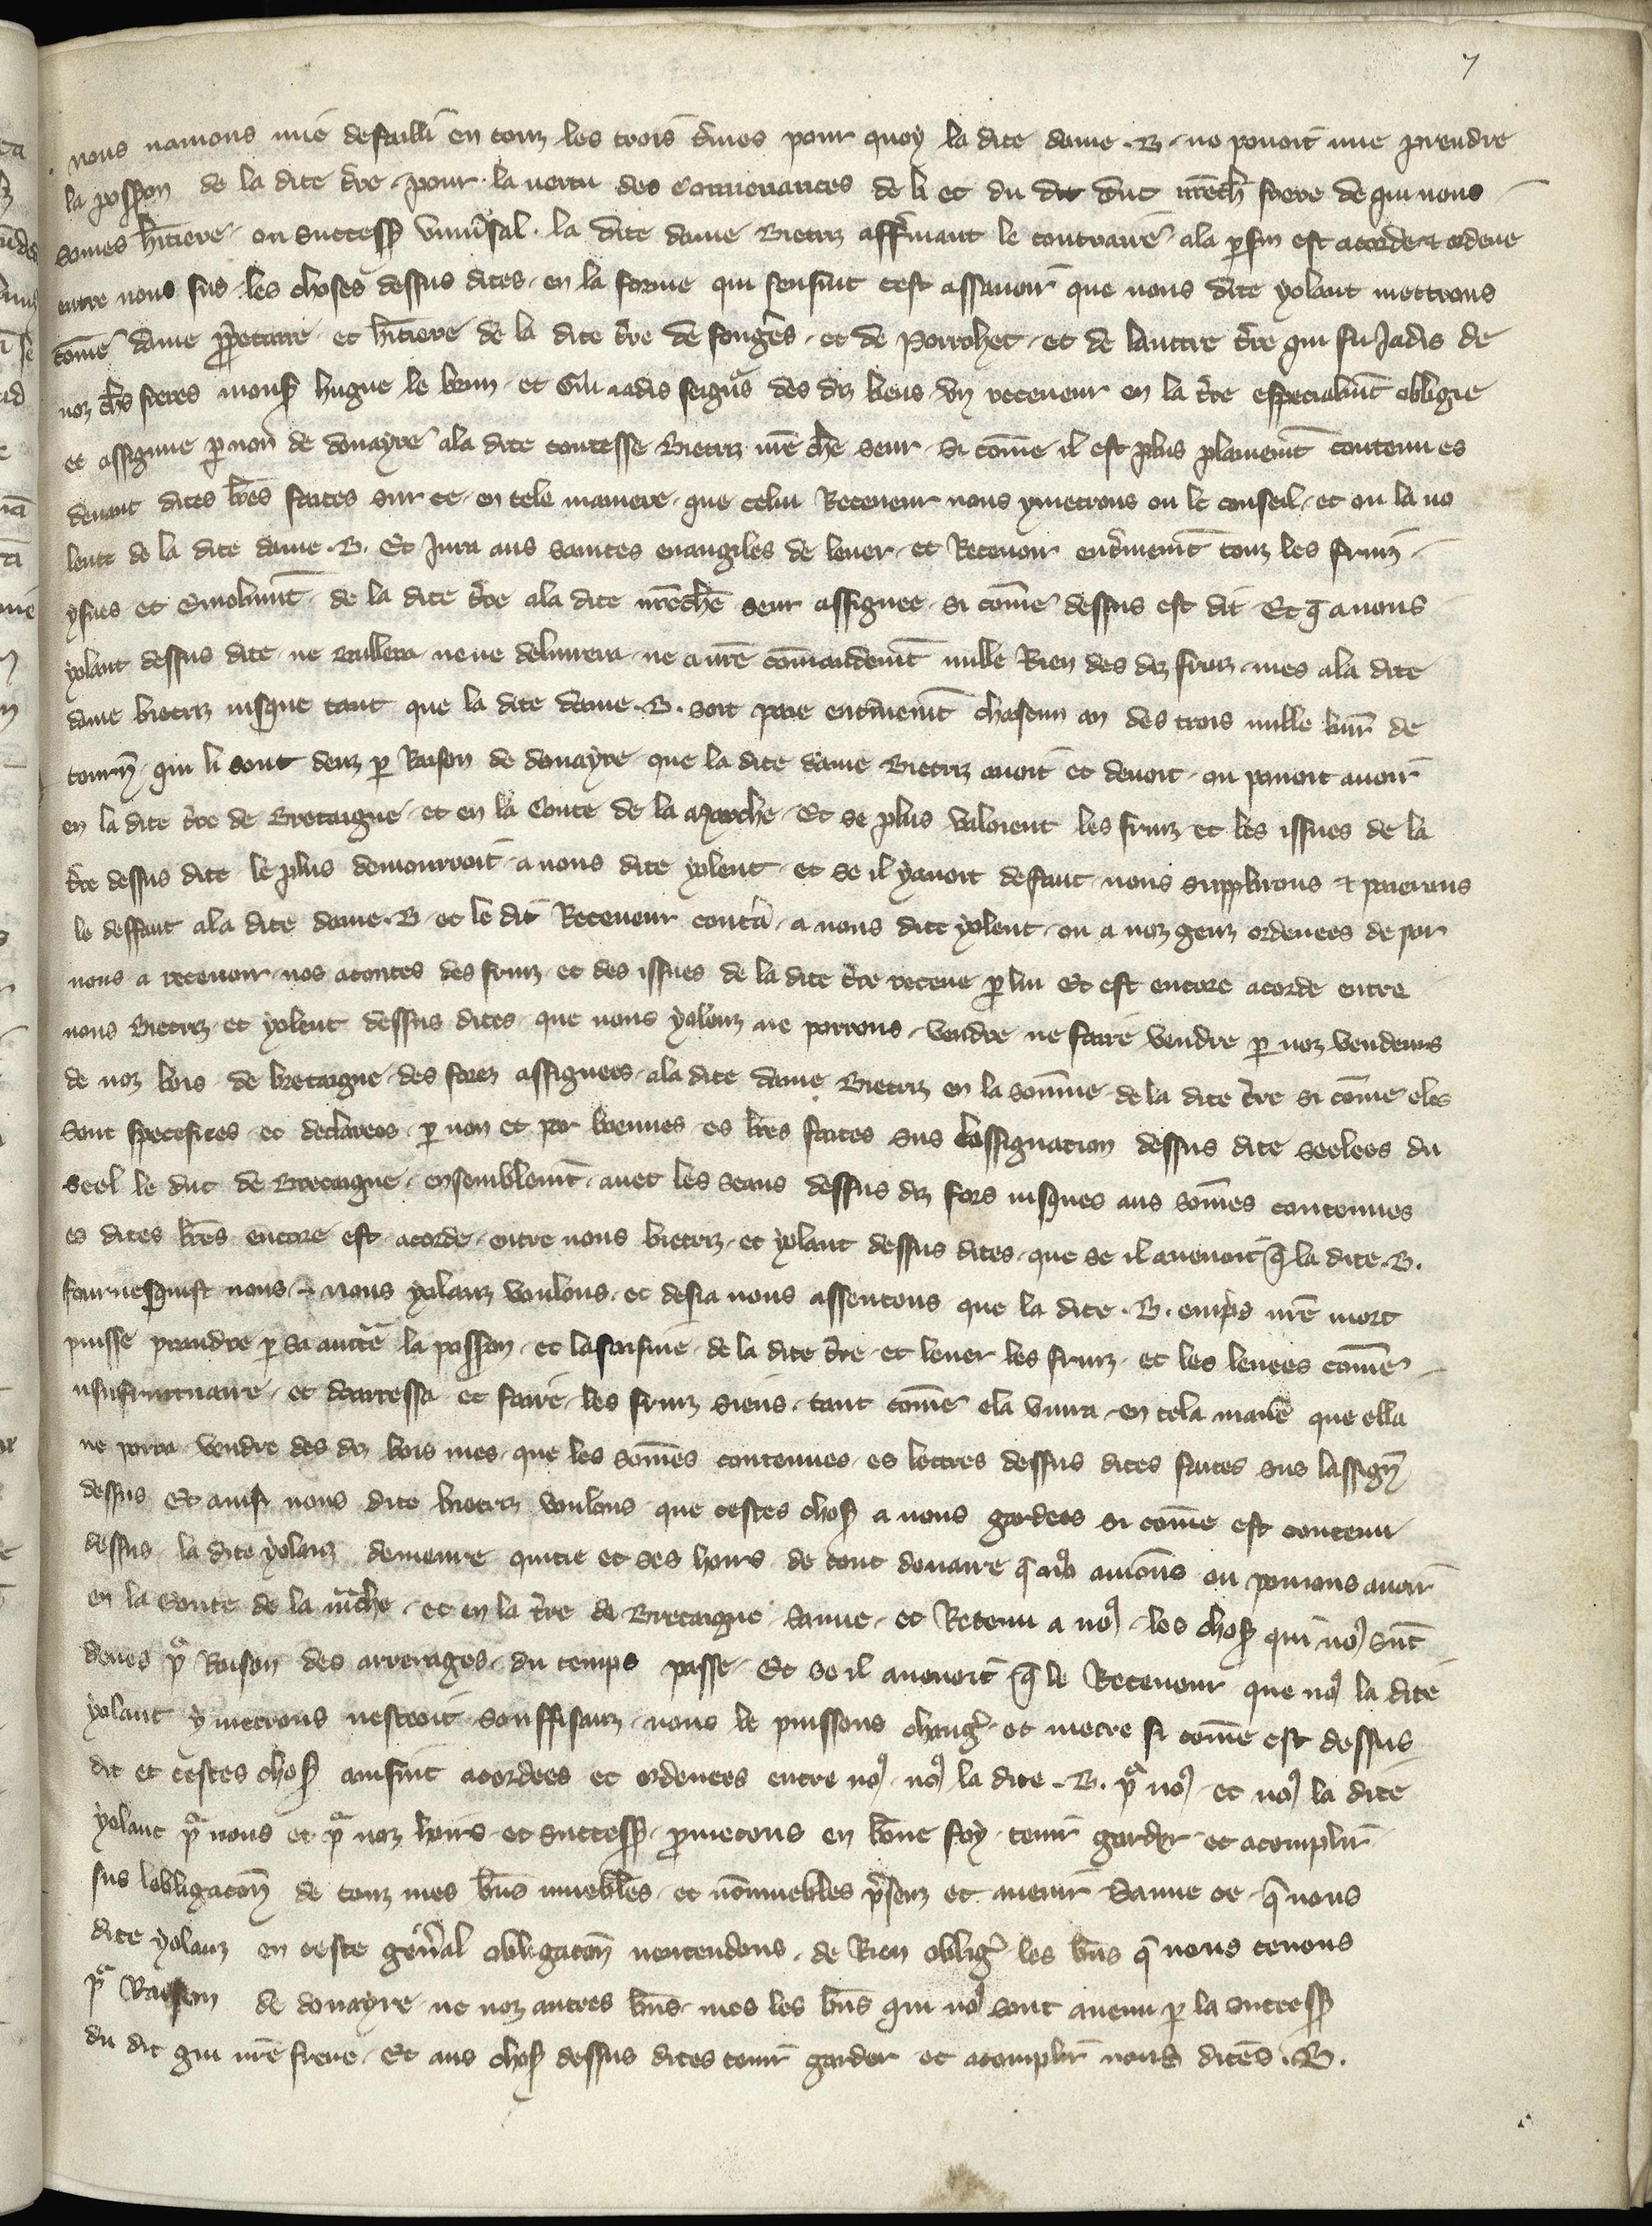 7
nous nauions mie defailli en touz les trois t̄mes pour quoy la dite dame .B. ne pouoit mie prendre
la poss̄on de la dite t̄re pour la uertu des conuenances de li et du dit dūt nr̄e ch̄ frere de qui nous
somes h̄itiere ou success̄ vniu̇sal. la dite dame Bietriz aff̄mant le contraire ala ꝑfin est acorde ⁊ ordene
entre nous sus les choses dessus dites en la forme qui sensuit cest assauoir que nous dite yolant mettrons
com̄e dame ꝓpetaire et h̄itiere de la dite t̄re de fouḡes et de Porrohet et de lauttre t̄re qui fu Jadis de
noz ch̄s freres mons̄ hugue le brun et Gui iadis seign̄s des dz liens vn receueur en la t̄re especialm̄t obligie
et assignne ꝑ non de douayre ala dite contesse Bietriz nr̄e ch̄e seur si com̄e il est plus plainem̄t contenu es
deuant dites lr̄es faites sur ce en tele maniere que celui Receueur nous ymetrons ou le conseil et ou la uo
lente de la dite dame .B. Et Jura aus saintes euangiles de leuer et Receuoir ent̄inem̄t touz les fruiz
ysues et emolum̄t de la dite t̄re ala dite nr̄e ch̄e seur assignee si com̄e dessus est dit Et q̄ a nous
yolant dessus dite ne baillera ne ne deliurera ne a nr̄e com̄andem̄t nulle Rien des dz fruiz mes ala dite
dame bietriz iusque tant que la dite dame .B. soit paie ent̄inem̄t chascun an des trois mille liur̄ de
tourn̄ qui li sont deuz ꝑ Raison de douayre que la dite dame Bietriz auoit et deuoit ou pouoit auoir
en la dite t̄re de Bretaigne et en la Conte de la Marche Et se plus valoient les fruiz et les issues de la
t̄re dessus dite le plus demourroit a nous dite yolent et se il yauoit defaut nous supplirons ⁊ paierons
le deffaut ala dite dame .B. et le dit Receueur cont̄a a nous dite yolent ou a noz genz ordenees de par
nous a receuoir nos acontes des fruiz et des issues de la dite t̄re receue ꝑ lui Et est encore acorde entre
nous Bietriz et yolent dessus dites que nous yolenz ne porrons vendre ne faire vendre ꝑ noz vendeurs
de noz bois de bretaigne des forez assignees ala dite dame Bietriz en la som̄me de la dite t̄re si com̄e eles
sont specefiees et declarees ꝑ non et par boennes es lr̄es faites sus lassignacion dessus dite seelees du
seel le duc de Bretaigne ensemblem̄t auec les seaus dessus dz fors iusques aus som̄es contenues
es dites lr̄es encore est acorde entre nous bietriz et yolant dessus dites que se il auenoit q̄ la dite .B.
seuruesquist nous nous yolanz voulons et desia nous assentons que la dite .B. emp̄s nr̄e mort
puisse prandre ꝑ sa auct̄e la poss̄on et lasaisine de la dite t̄re et leuer les fruiz et les leuees com̄e
usufructuaire et doairessa et faire les fruiz siens tant com̄e ela viura en tela mani̇e que ella
ne porra vendre des dz bois mes que les som̄es contenues es lettres dessus dites faites sus lassign̄
dessus Et ausi nous dite bietriz voulons que cestes chos̄ a nous gardees si com̄e est contenu
dessus la dite yolanz demeure quitie et ses hoirs de tout douaire q̄ no᷒ auions ou pouions auoir
en la Conte de la m̄che et en la t̄re de Bretaigne Sauue et Retenu a no᷒ les chos̄ qui no᷒ sūt
deues p̄ Raison des arrerages du temps passe Et se il auenoit q̄ le Receueur que no᷒ la dite
yolant y metrons nestroit souffisanz nous le puissons chang̃ et metre si com̄e est dessus
dit et cestes chos̄ ausint acordees et ordenees entre no᷒ no᷒ la dite .B. p̄ no᷒ et no᷒ la dite
yolant p̄ nous et p̄ noz hoirs et success̄ ꝓmetons en bōne foy tenir garder et acomplir
sus lobligacōn de touz mes bn̄s muebles et nōnmuebles p̄senz et auenir Sauue ce q̄ nous
dite yolanz en ceste geñal obligacōn nentendons de Rien oblig̃ les bn̄s q̄ nous tenons
p̄ Raeson de douayre ne noz autres bn̄s mes les bn̄s qui no᷒ sont auenu ꝑ la success̄
du dit gui nr̄e frere Et aus chos̄ dessus dites tenir garder et acomplir nous dites .B.